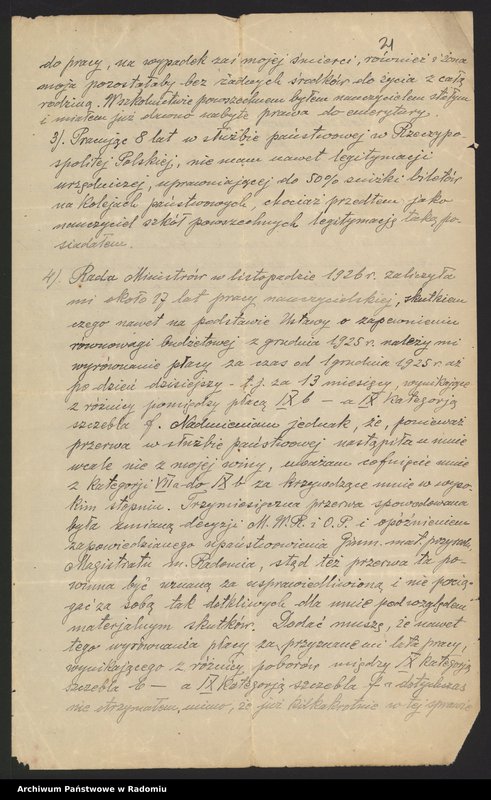 21
do pracy, na wypadek zaś mojej śmierci, również i żona
moja pozostałaby bez żadnych środków do życia z całą
rodziną. W szkolnictwie powszechnem byłem nauczycielem stałym
i miałem już dawno nabyte prawa do emerytury.
3). Pracując 8 lat w służbie państwowej w Rzeczypo-
spolitej Polskiej, nie mam nawet legitymacji
urzędniczej, uprawniającej do 50% zniżki biletów
na kolejach państwowych, chociaż przedtem jako
nauczyciel szkół powszechnych legitymację taką po-
siadałem.
4). Rada Ministrów w listopadzie 1926 r. zaliczyła
mi około 17 lat pracy nauczycielskiej, skutkiem
czego nawet na podstawie Ustawy o zapewnieniu
równowagi budżetowej z grudnia 1925 r. należy mi
wyrównanie płacy za czas od 1 grudnia 1925 r. aż
po dzień dzisiejszy - t.j. za 13 miesięcy, wynikające
z różnicy pomiędzy płacą IX b — a IX kategorją
szczebla f. Nadmieniam jednak, że, ponieważ
przerwa w służbie państwowej nastąpiła u mnie
wcale nie z mojej winy, uważam cofnięcie mnie
z kategorji VII a do IX b za krzywdzące mnie w wyso-
kim stopniu. Trzymiesięczna przerwa spowodowana
była zmianą decyzji M. W. R. i O. P. i opóźnieniem
zapowiedzianego upaństwowienia Gimn. mat. przyrod.
Magistratu m. Radomia, stąd też przerwa ta po-
winna być uznaną za usprawiedliwioną i nie pocią-
gać za sobą tak dotkliwych dla mnie pod względem
materjalnym skutków. Dodać muszę, że nawet
tego wyrównania płacy za przyznane mi lata pracy,
wynikającego z różnicy poborów między IX kategorją
szczebla b — a IX kategorją szczebla f - dotychczas
nie otrzymałem, mimo, że już kilkakrotnie w tej sprawie
Archiwum Państwowe w Radomiu